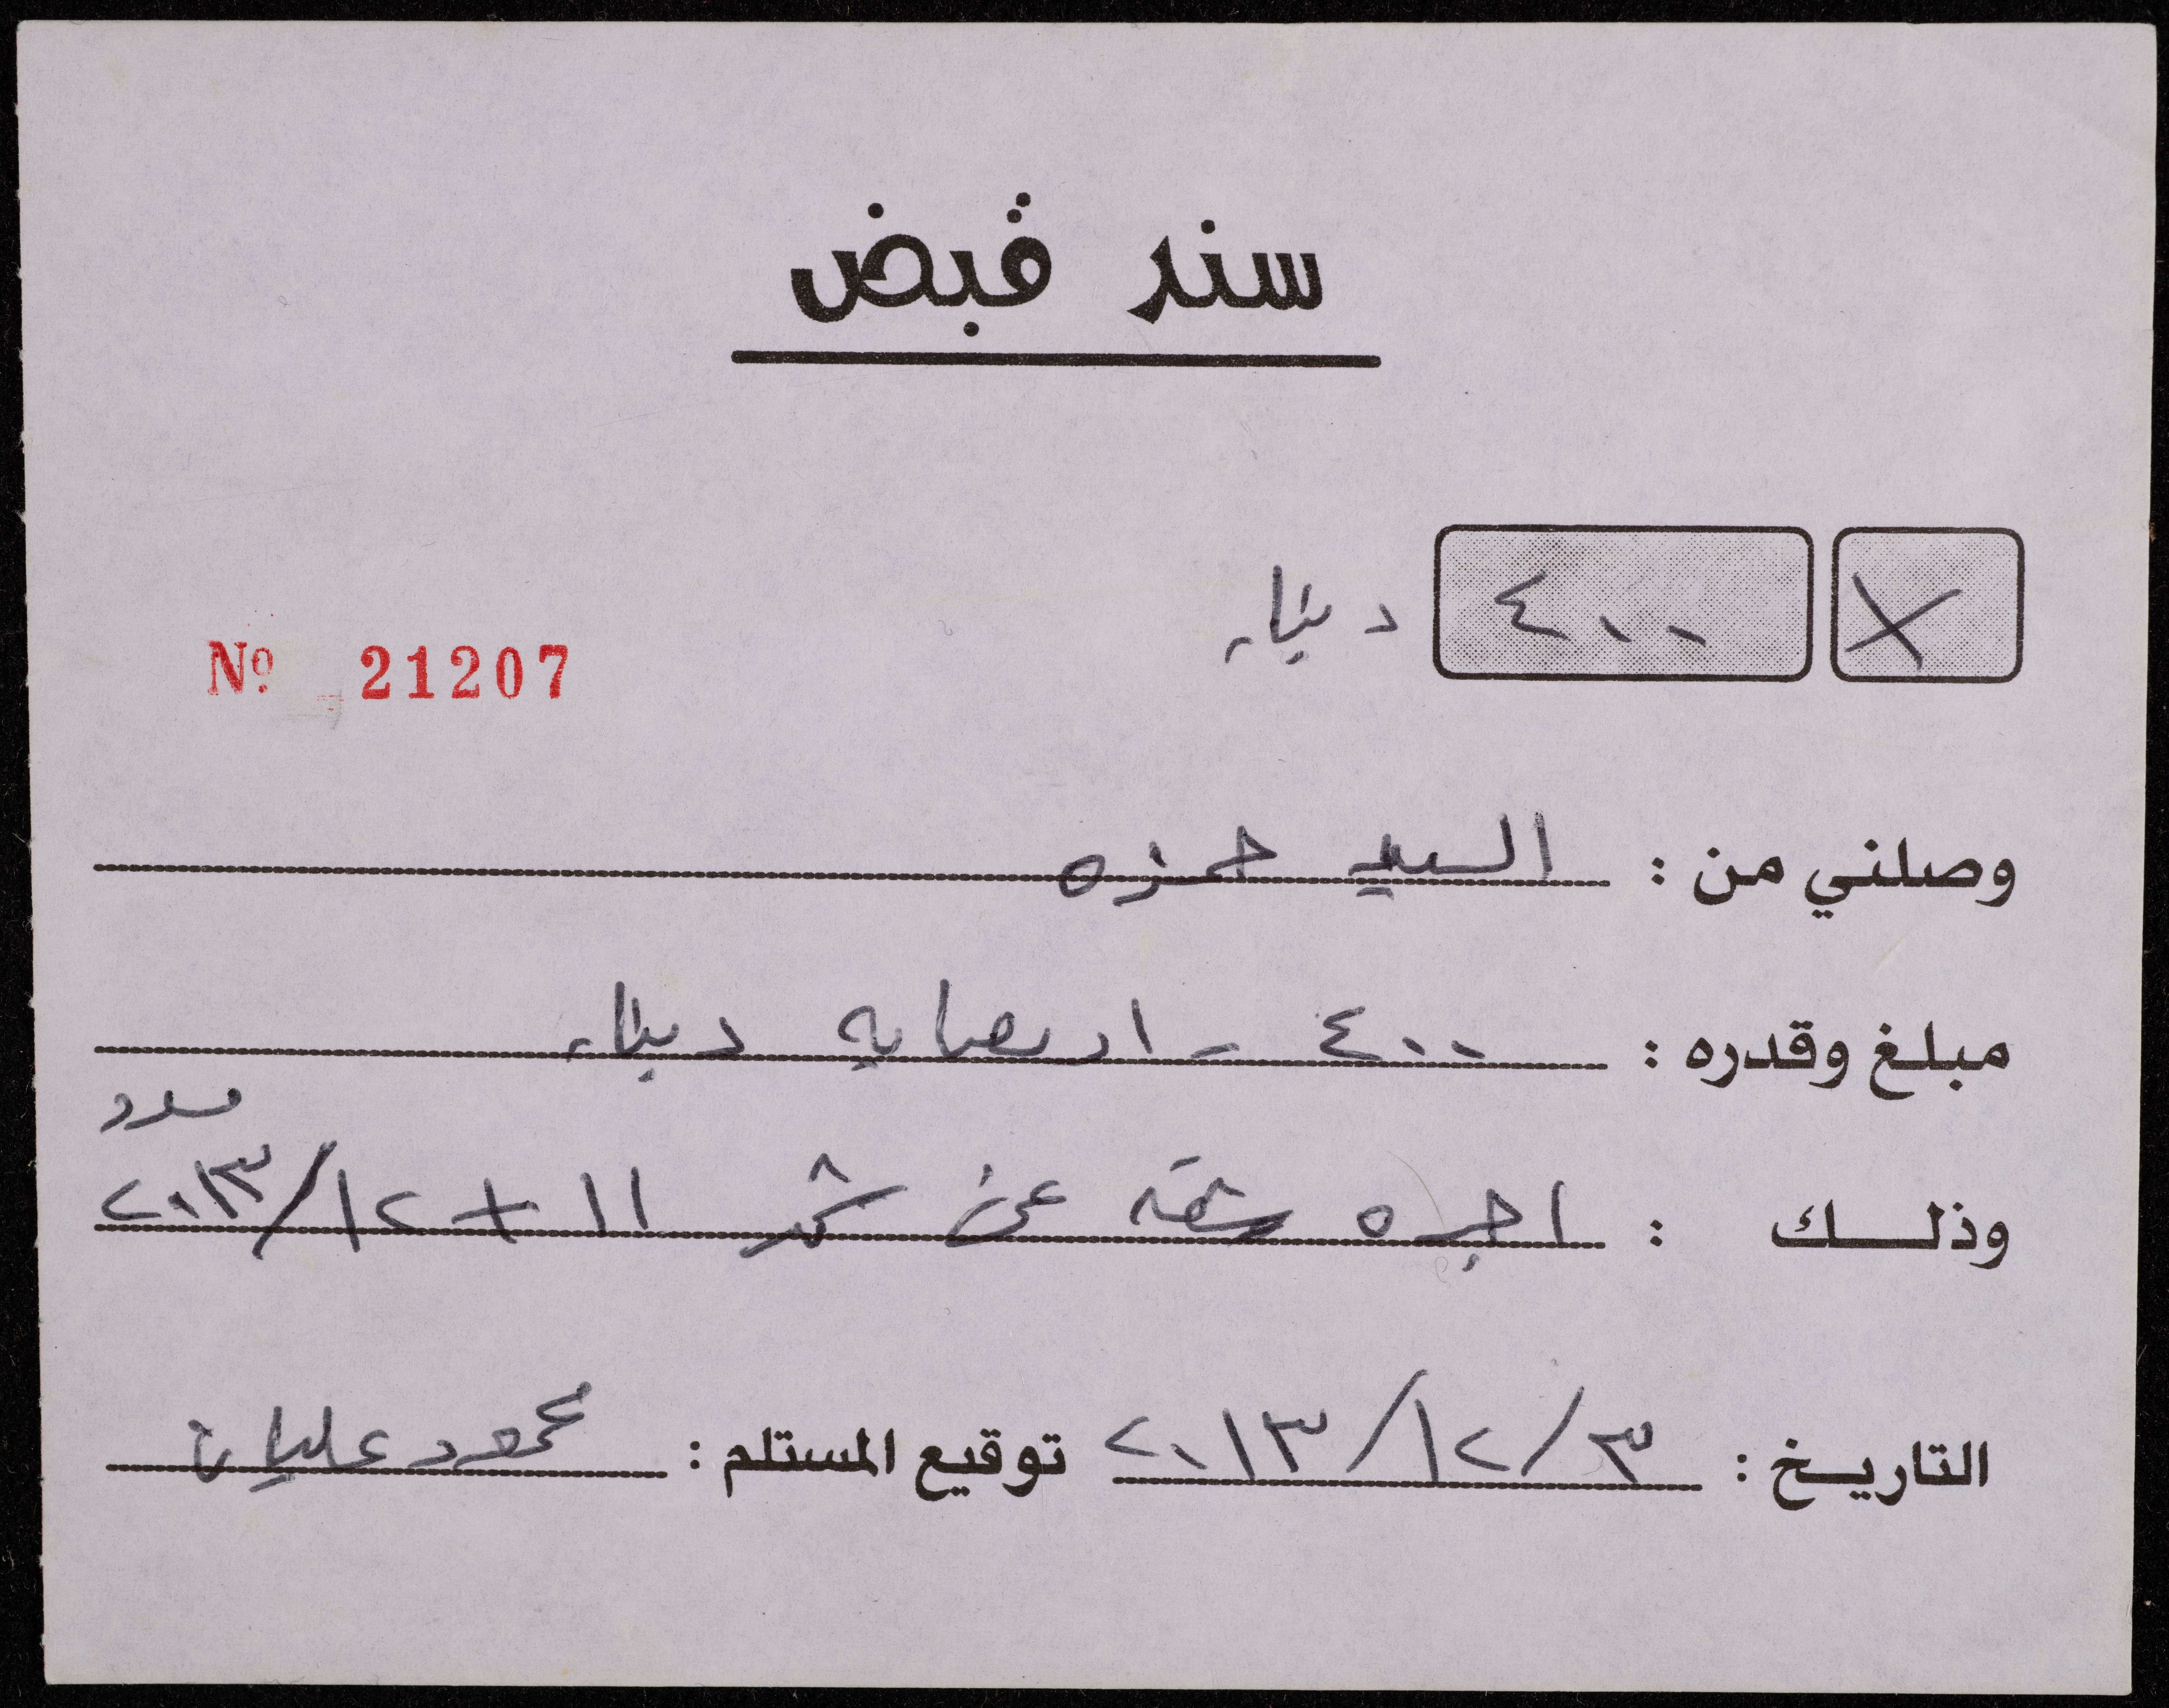 سند قبض
X ٤٠٠ دينار
Nº 21207
وصلني من : السيد حمزه
مبلغ وقدره : ٤٠٠ - اربعمايه دينار
وذلك : اجره شقه عن شهر ١١ + ١٢/٢٠١٣
التاريخ : ٣/١٢/٢٠١٣ توقيع المستلم : محمود عليان